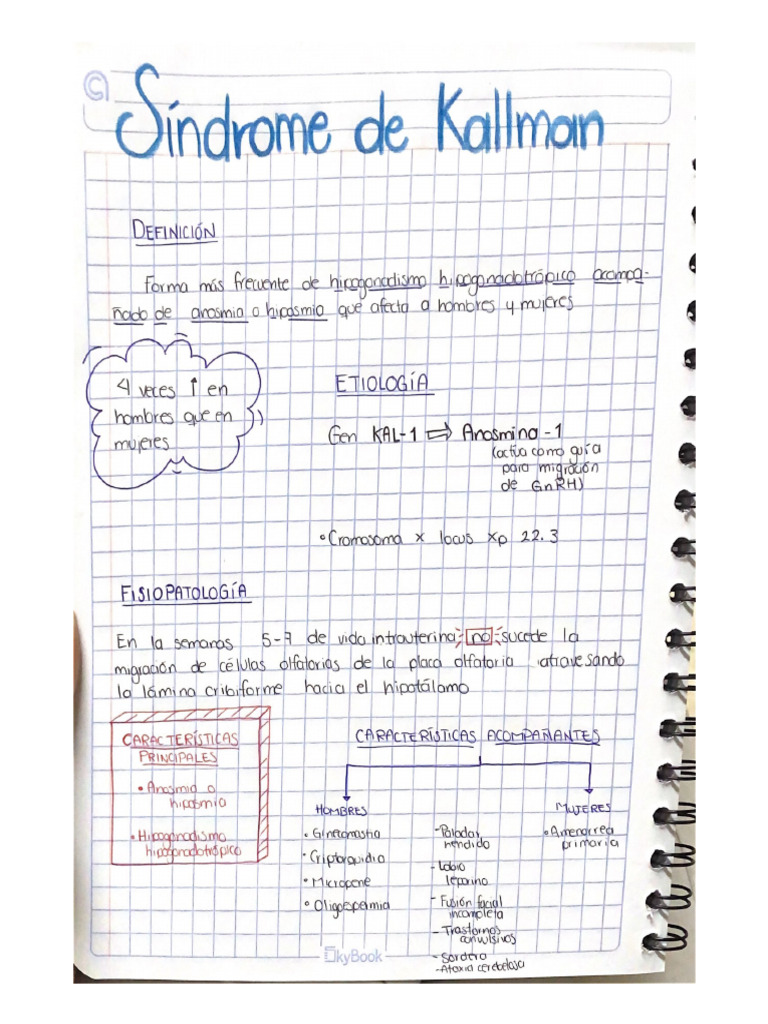 Síndrome de Kallman
DEFINICIÓN
Forma más frecuente de hipogonadismo hipogonadotrópico acompa-
ñado de anosmia o hiposmia que afecta a hombres y mujeres
4 veces ↑ en
hombres que en
mujeres
ETIOLOGÍA
Gen KAL-1 ⇒ Anosmina-1
(actúa como guía
para migración
de GnRH)
•Cromosoma x locus xp 22.3
FISIOPATOLOGÍA
En la semanas 5-7 de vida intrauterina no sucede la
migración de células olfatorias de la placa olfatoria atravesando
la lámina cribiforme hacia el hipotálamo
CARACTERÍSTICAS
PRINCIPALES
•Anosmia o
hiposmia
•Hipogonadismo
hipogonadotrópico
CARACTERÍSTICAS ACOMPAÑANTES
HOMBRES
•Ginecomastia
•Criptorquidia
•Micropene
•Oligospermia
-Paladar
hendido
-Labio
leporino
-Fusión facial
incompleta
-Trastornos
convulsivos
-Sordera
-Ataxia cerebelosa
MUJERES
•Amenorrea
primaria
SkyBook